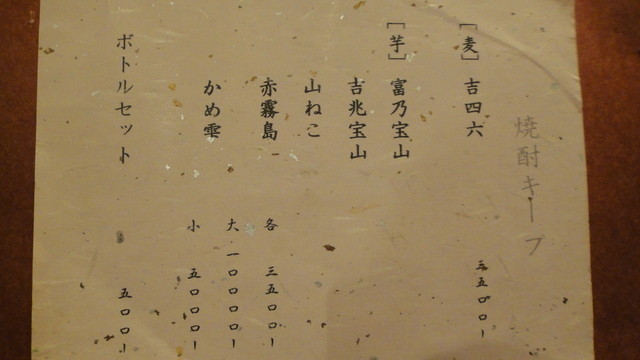 焼酎キープ
［麦］ 吉四六 三五〇〇ー
［芋］ 富乃宝山
吉兆宝山
山ねこ
赤霧島 各 三五〇〇ー
かめ雫 大 一〇〇〇〇ー
小 五〇〇〇ー
ボトルセット 五〇〇ー